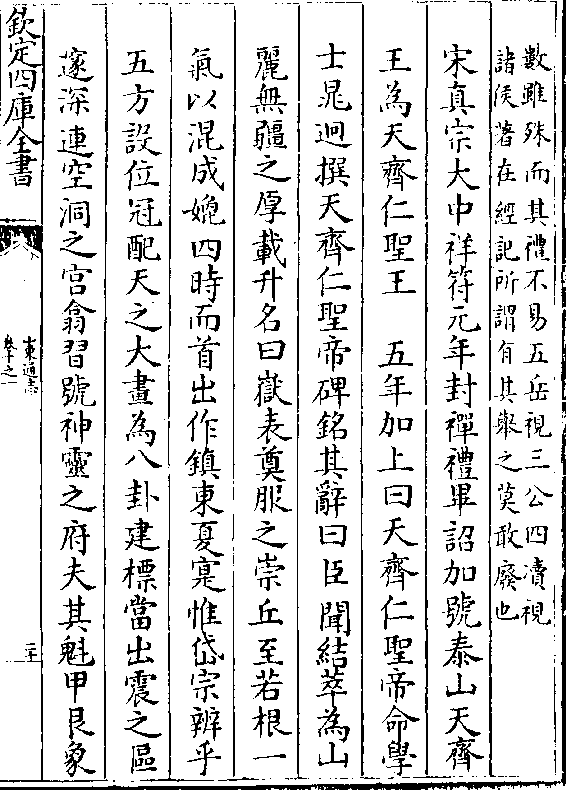 數雖殊而其禮不易五岳視三公四瀆視
諸侯著在經記所謂有其舉之莫敢廢也
宋真宗大中祥符元年封禪禮畢詔加號泰山天齊
王為天齊仁聖王　五年加上曰天齊仁聖帝命學
士晁迥撰天齊仁聖帝碑銘其辭曰臣聞結萃為山
麗無疆之厚載升名曰嶽表奠服之崇丘至若根一
氣以混成娩四時而首出作鎮東夏寔惟岱宗辨乎
五方設位冠配天之大畫為八卦建標當出震之區
邃深連空洞之宮翕習號神靈之府夫其魁甲艮象
欽定四庫全書